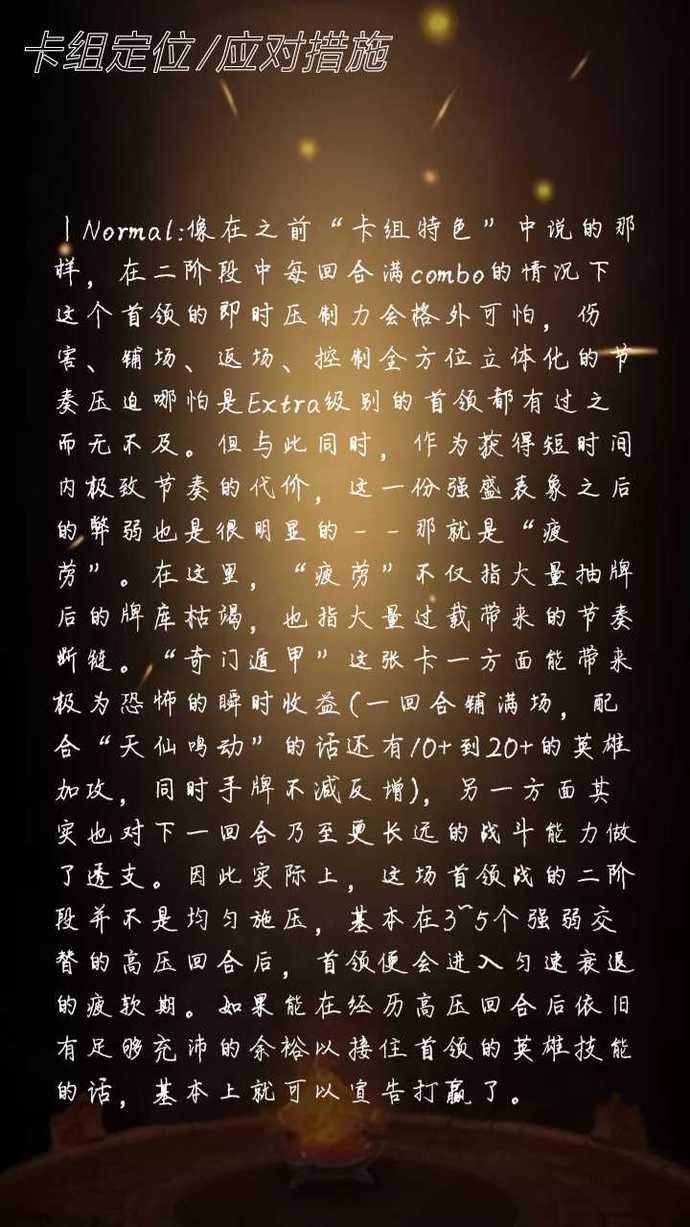 卡组定位/应对措施
丨Normal:像在之前“卡组特色”中说的那
样，在二阶段中每回合满combo的情况下
这个首领的即时压制力会格外可怕，伤
害、铺场、返场、控制全方位立体化的节
奏压迫哪怕是Extra级别的首领都有过之
而无不及。但与此同时，作为获得短时间
内极致节奏的代价，这一份强盛表象之后
的弊弱也是很明显的--那就是“疲
劳”。在这里，“疲劳”不仅指大量抽牌
后的牌库枯竭，也指大量过载带来的节奏
断链。“奇门遁甲”这张卡一方面能带来
极为恐怖的瞬时收益(一回合铺满场，配
合“天仙鸣动”的话还有10+到20+的英雄
加攻，同时手牌不减反增)，另一方面其
实也对下一回合乃至更长远的战斗能力做
了透支。因此实际上，这场首领战的二阶
段并不是均匀施压，基本在3~5个强弱交
替的高压回合后，首领便会进入匀速衰退
的疲软期。如果能在经历高压回合后依旧
有足够充沛的余裕以接住首领的英雄技能
的话，基本上就可以宣告打赢了。